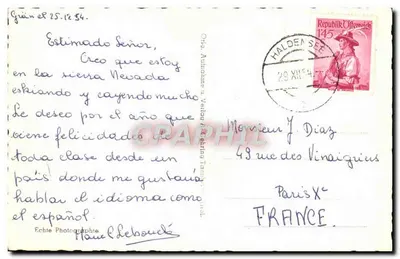 Grän el 25.12.54.
Estimado Señor,
Creo que estoy
en la sierra Nevada
eskiando y cayendo mucho
Le deseo por el año que
viene felicidades de
toda clase desde un
país donde me gustaría
hablar el idioma como
el español.
Echte Photographie
HALDENSEE
Republik Österreich
1S45
Monsieur J. Diaz
49 rue des Vinaigriers
Paris Xe
FRANCE.
CPARTPHIL